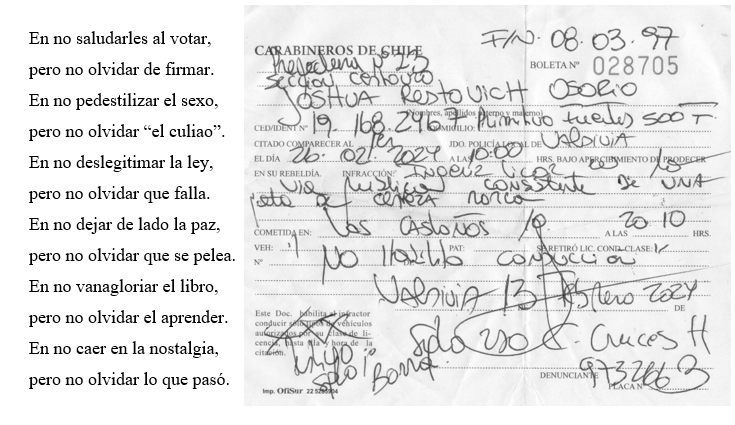 En no saludarles al votar,
pero no olvidar de firmar.
En no pedestilizar el sexo,
pero no olvidar “el culiao”.
En no deslegitimar la ley,
pero no olvidar que falla.
En no dejar de lado la paz,
pero no olvidar que se pelea.
En no vanagloriar el libro,
pero no olvidar el aprender.
En no caer en la nostalgia,
pero no olvidar lo que pasó.
F/N. 08.03.97
CARABINEROS DE CHILE
BOLETA Nº 028705
JOSHUA RESTOVICH OSORIO
Nombres, apellidos (paterno y materno)
CED/IDENT Nº 19.168.2467 DOMICILIO: 500
CITADO COMPARECER AL JDO. POLICIA LOCAL DE VALDIVIA
EL DÍA 26.02.2024 A LAS 10:00 HRS. BAJO APERCIBIMIENTO DE PROCEDER
EN SU REBELDÍA. INFRACCIÓN: Ingerir licor
via publica consistente DE UNA
lata DE CERVEZA
COMETIDA EN: Los CASTAÑOS A LAS 20 10 HRS.
VEH: PAT: SE RETIRÓ LIC. COND. CLASE:
Nº NO CONDUCCION
VALDIVIA 13 Febrero 2024
DE
Este Doc. habilita al infractor
conducir sólo tipos de vehículos
autorizados por su clase de li-
cencia, hasta día y hora de la
citación.
C. Cruces H
DENUNCIANTE
973266 B
PLACA Nº
Imp. OfiSur